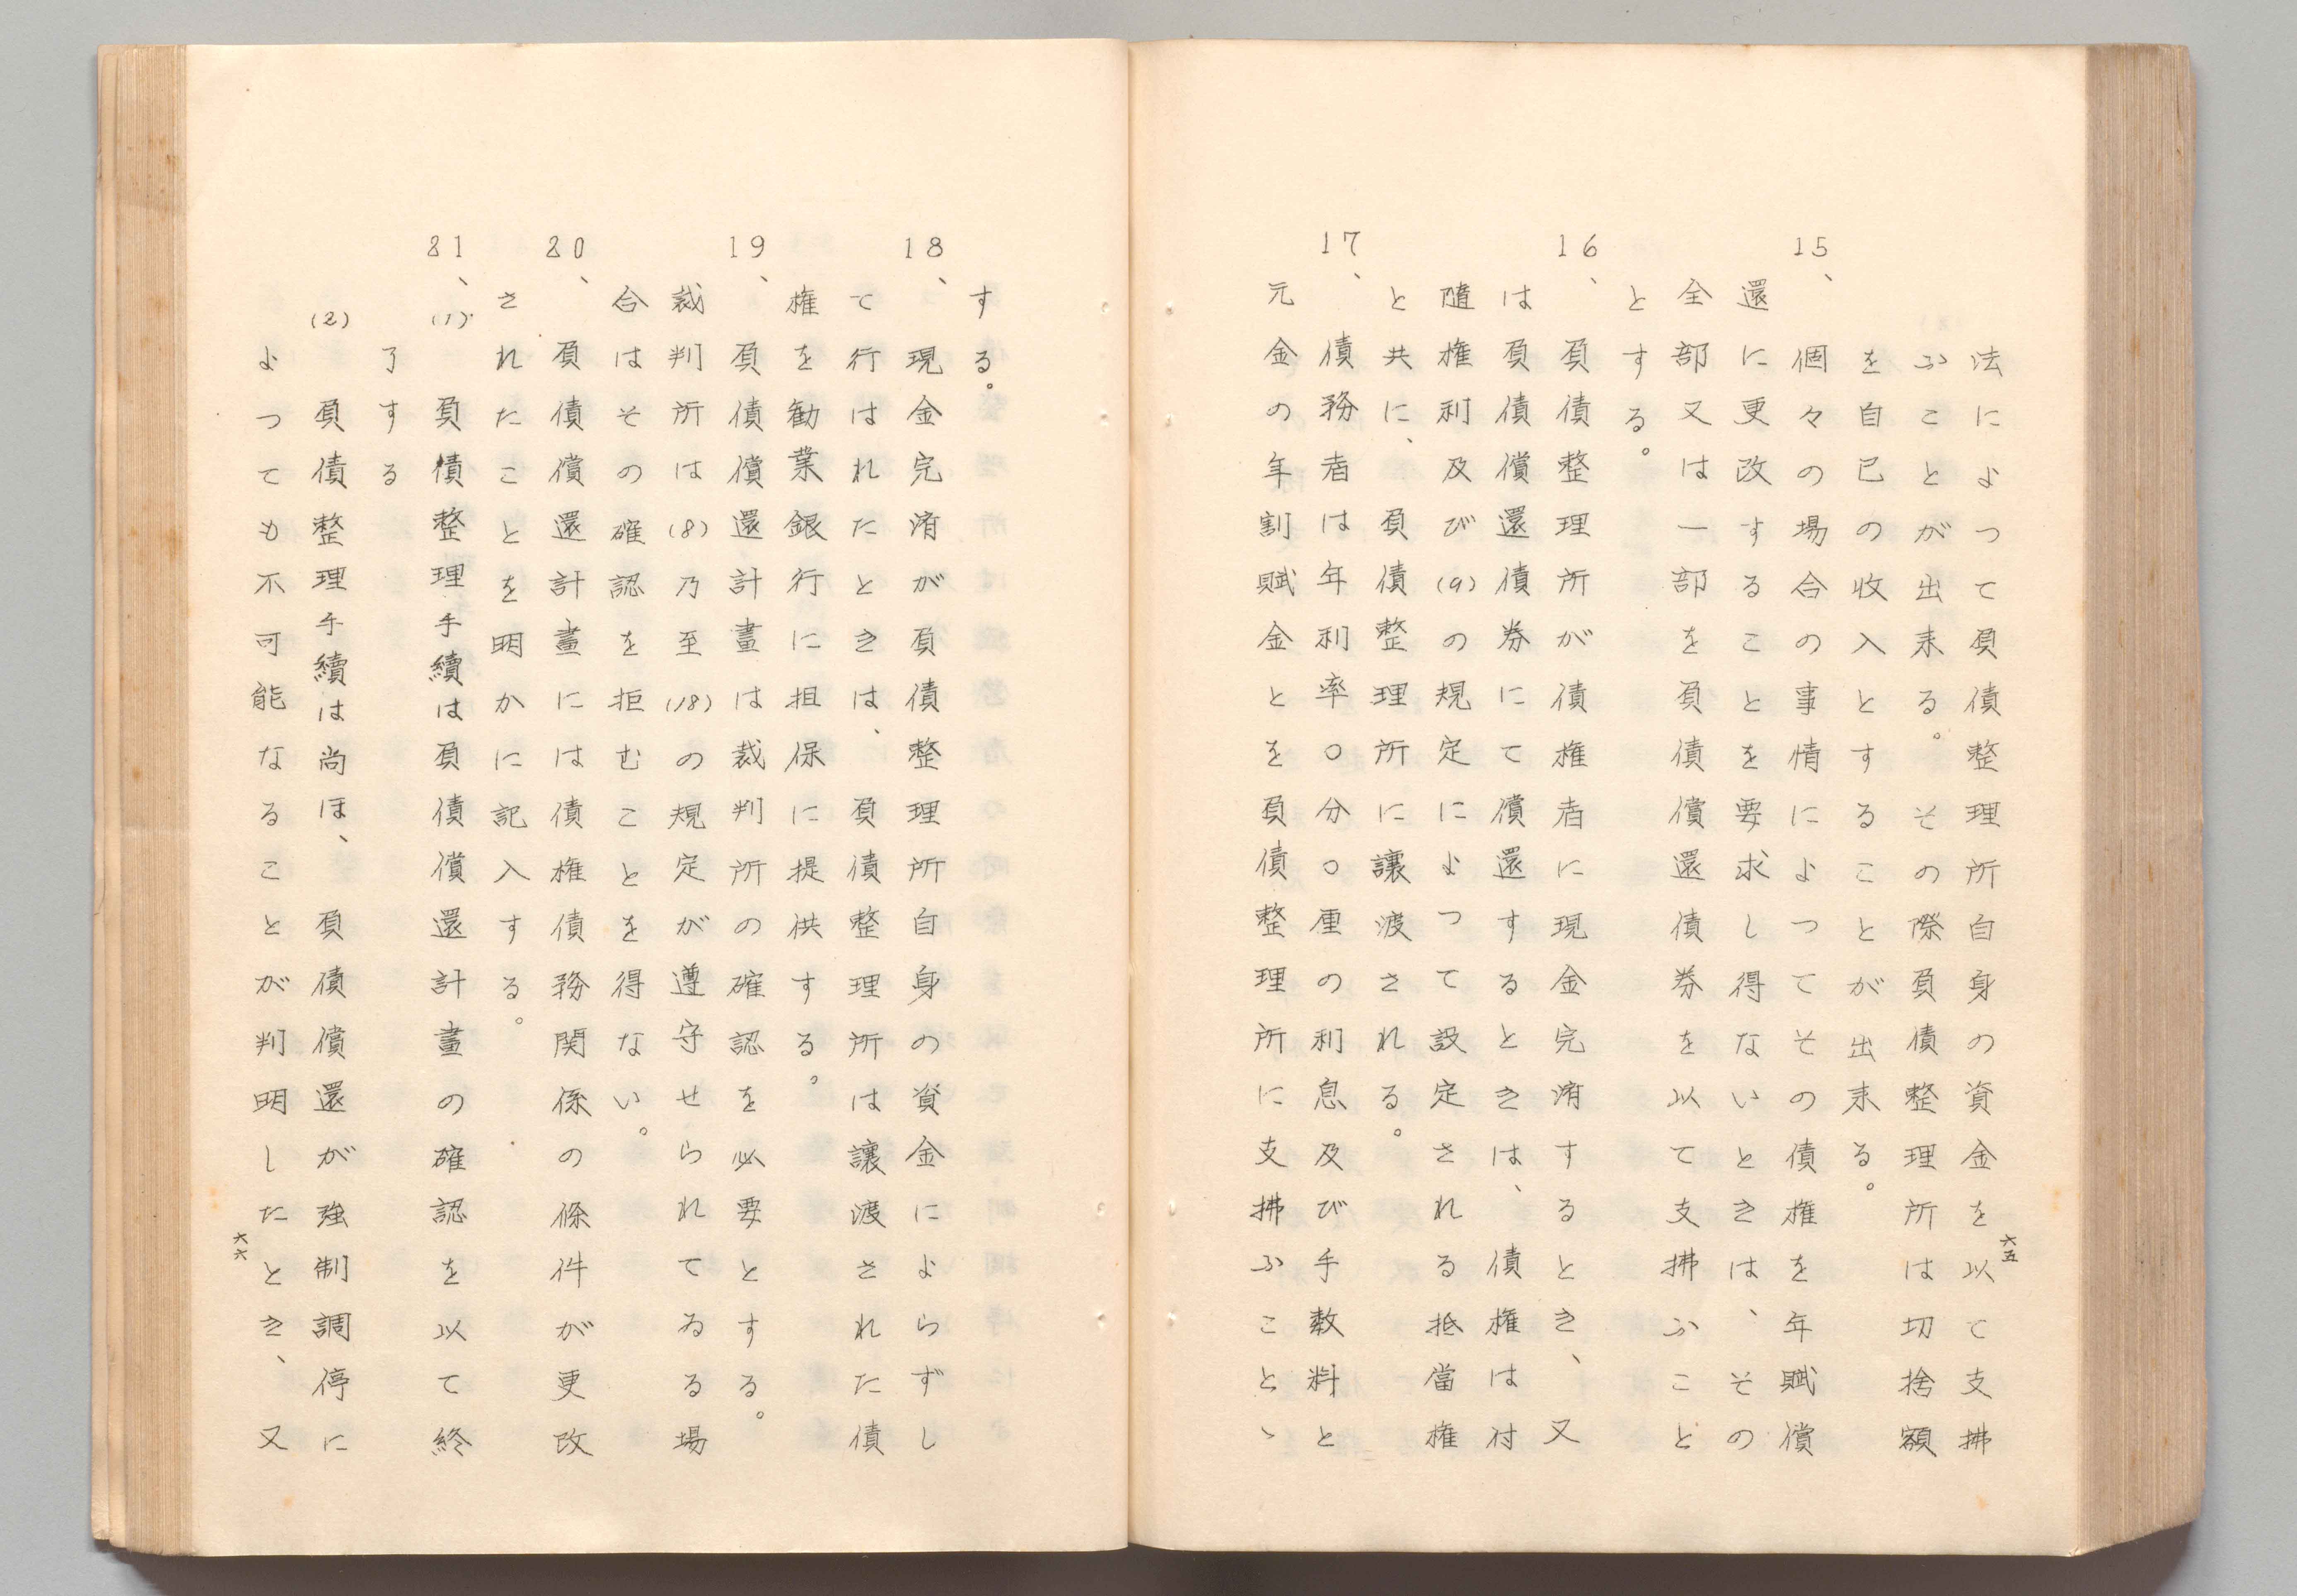 法によつて負債整理所自身の資金を以て支拂
ふことが出来る。その際負債整理所は切捨額
を自己の收入とすることが出来る。
15、個々の場合の事情によつてその債権を年賦償
還に更改することを要求し得ないときは、その
全部又は一部を負債償還債券を以て支拂ふこと
とする。
16、負債整理所が債権者に現金完済するとき、又
は負債償還債券にて償還するときは、債権は付
随権利及び(9)の規定によつて設定される抵當権
と共に、負債整理所に讓渡される。
17、債務者は年利率〇分〇厘の利息及び手数料と
元金の年割賦金とを負債整理所に支拂ふことゝ
六五
する。
18、現金完済が負債整理所自身の資金によらずし
て行はれたときは、負債整理所は讓渡された債
権を勧業銀行に担保に提供する。
19、負債償還計畫は裁判所の確認を必要とする。
裁判所は(8)乃至(18)の規定が遵守せられてゐる場
合はその確認を拒むことを得ない。
20、負債償還計畫には債権債務関係の條件が更改
されたことを明かに記入する。
21、(1)負債整理手續は負債償還計畫の確認を以て終
了する
(2)負債整理手續は尚ほ、負債償還が強制調停に
よつても不可能なることが判明したとき、又
六六